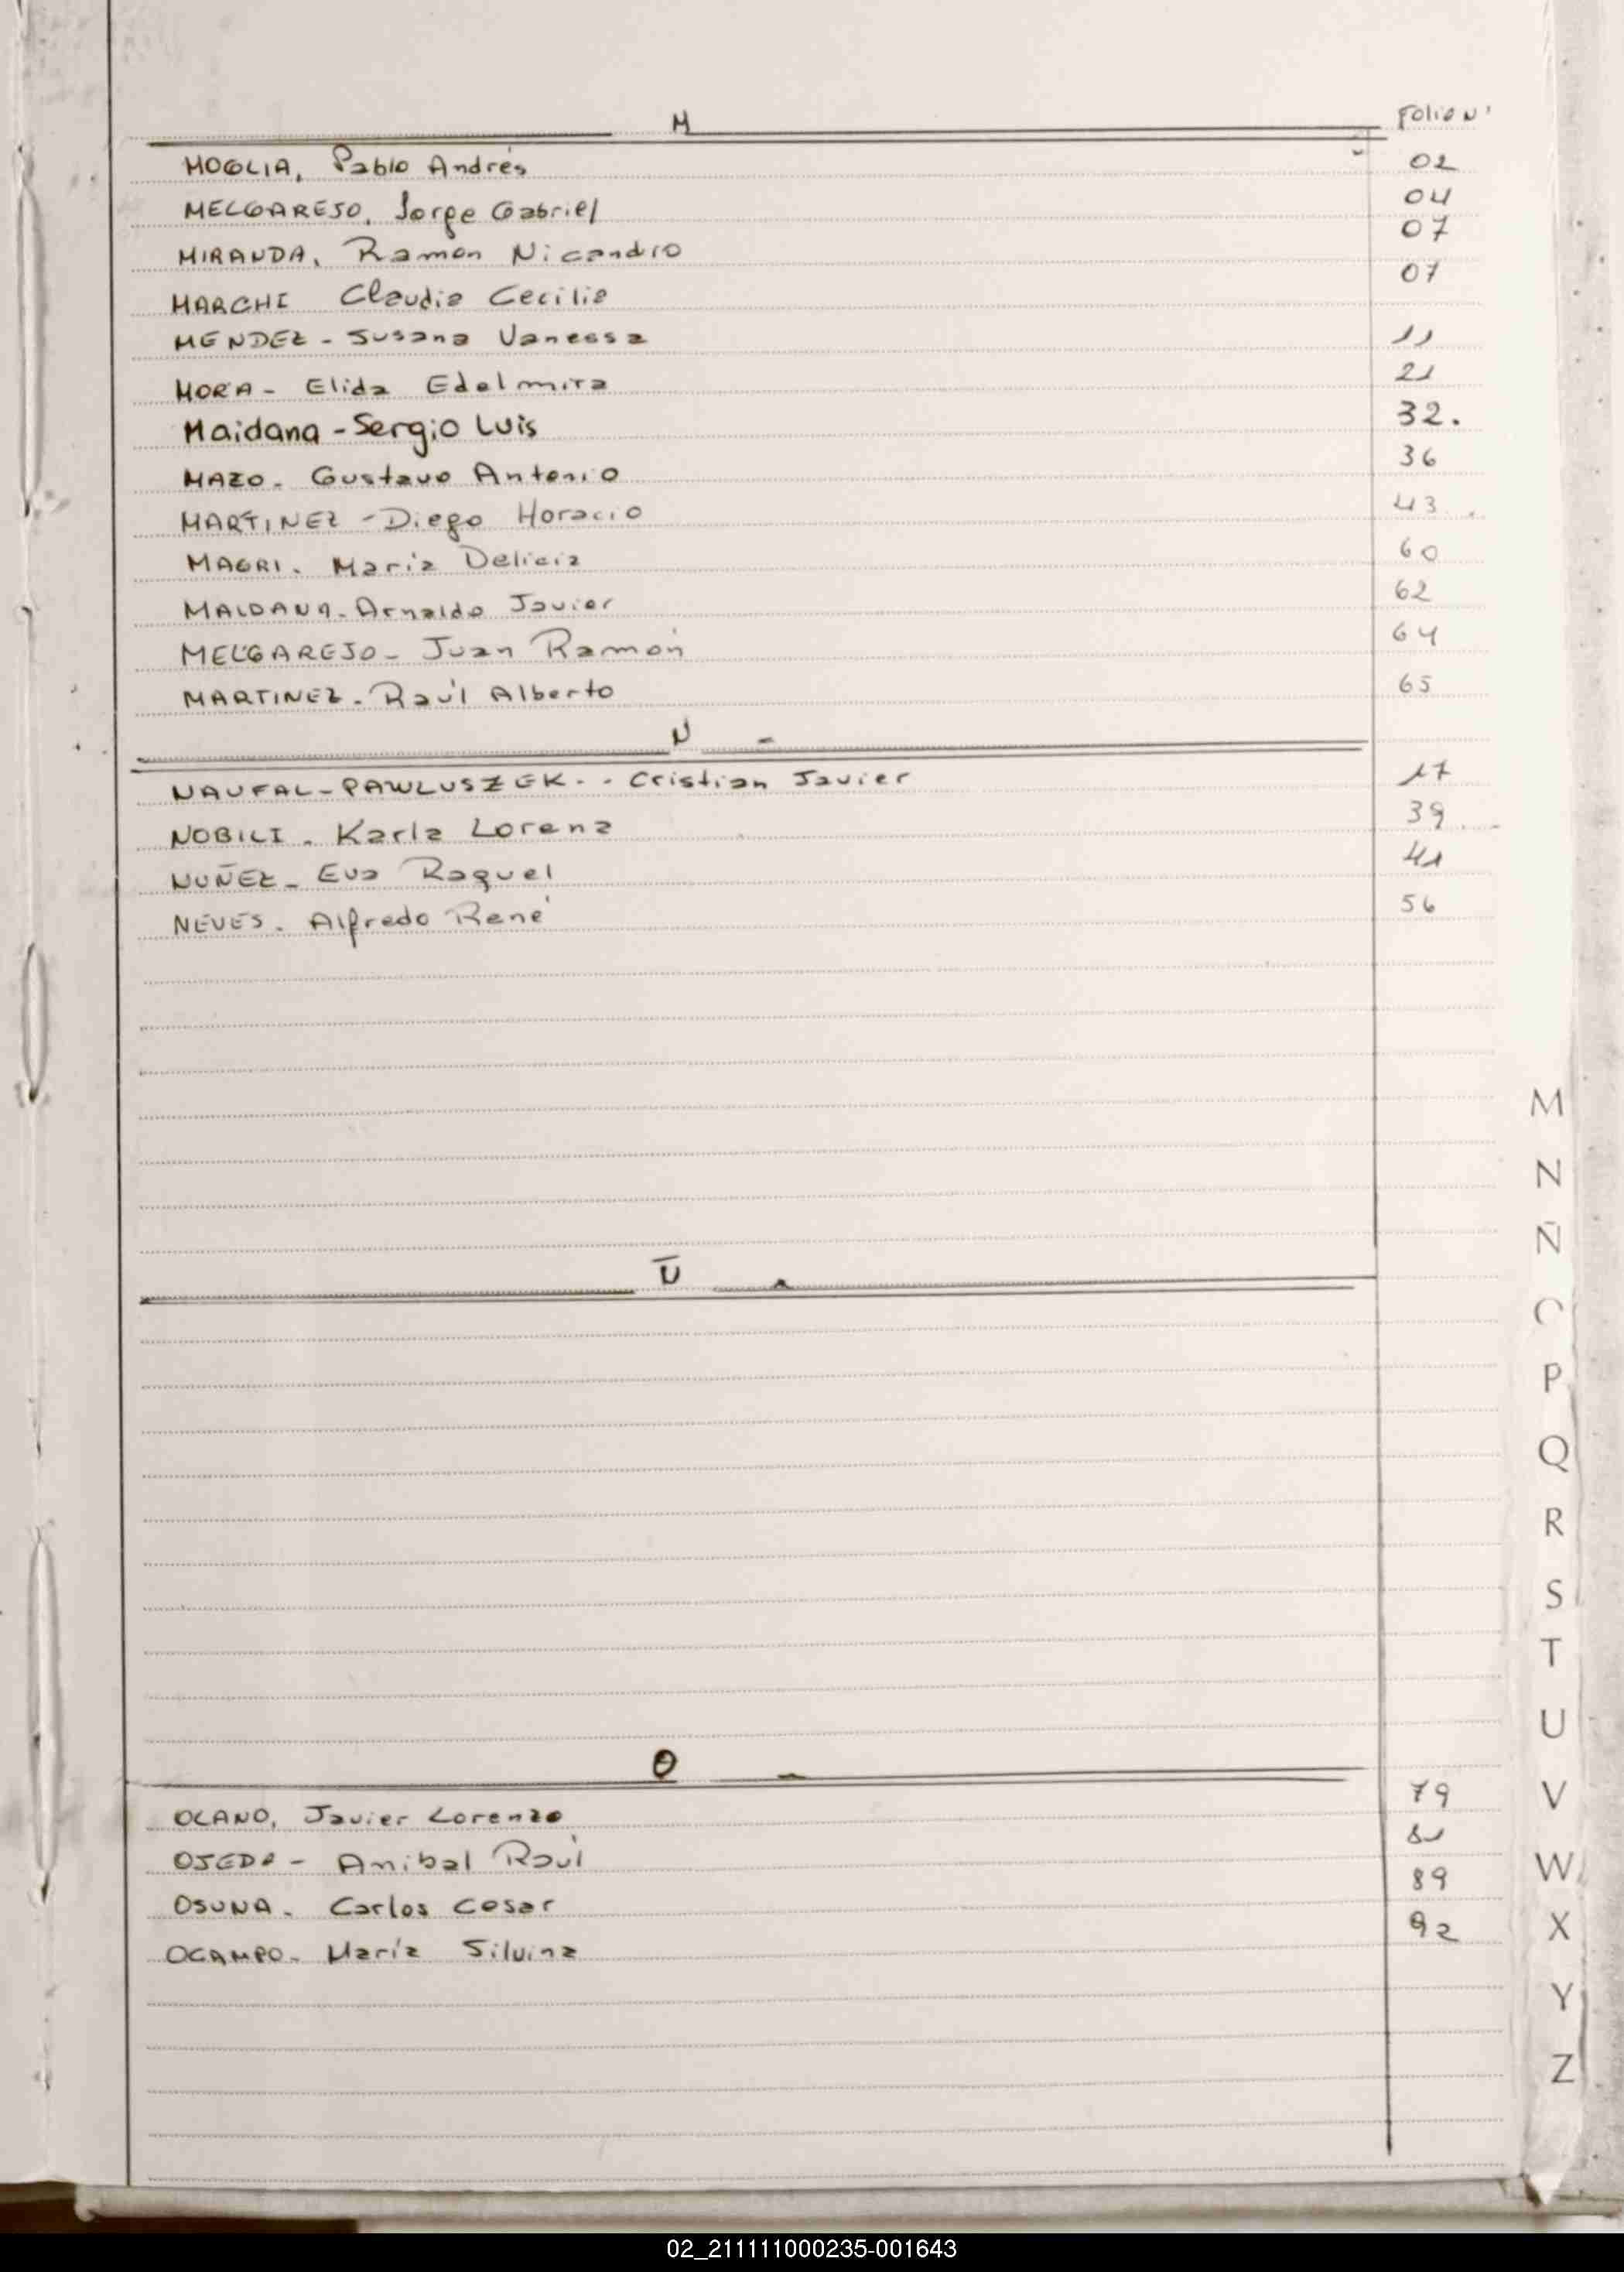 M Folio Nº
MOGLIA, Pablo Andrés 02
MELGAREJO, Jorge Gabriel 04
MIRANDA, Ramon Nicandro 07
MARCHI Claudia Cecilia 07
MENDEZ - Susana Vanessa 11
MORA - Elida Edelmira 21
Maidana - Sergio Luis 32.
MAZO - Gustavo Antonio 36
MARTINEZ - Diego Horacio 43
MAGRI - María Delicia 60
MAIDANA - Arnaldo Javier 62
MELGAREJO - Juan Ramón 64
MARTINEZ - Raúl Alberto 65
N -
NAUFAL - PAWLUSZEK - - Cristian Javier 17
NOBILI - Karla Lorena 39
NUÑEZ - Eva Raquel 41
NEVES - Alfredo René 56
Ñ -
O -
OLANO, Javier Lorenzo 79
OJEDA - Anibal Raúl 81
OSUNA - Carlos Cesar 89
OCAMPO - María Silvina 92
M
N
Ñ
O
P
Q
R
S
T
U
V
W
X
Y
Z
02_211111000235-001643